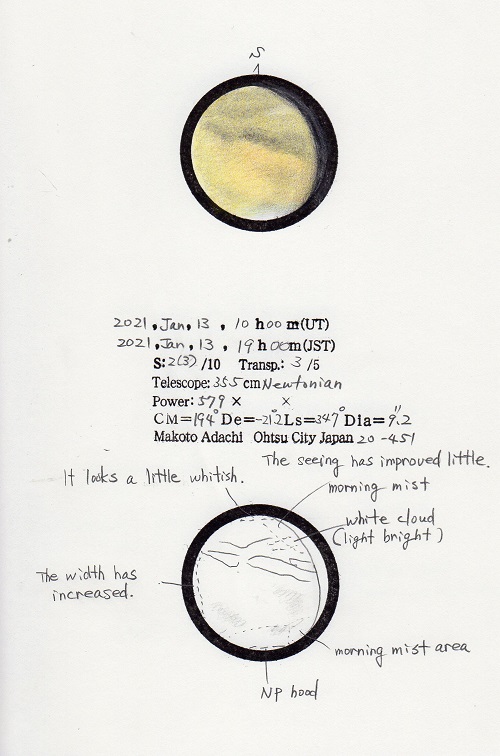 S
2021, Jan, 13, 10 h 00 m(UT)
2021, Jan, 13, 19 h 00 m(JST)
S: 2(3) /10 Transp.: 3 /5
Telescope: 355 cm Newtonian
Power: 579 × ×
CM=194° De=-21.°2 Ls=347° Dia=9."2
Makoto Adachi Ohtsu City Japan 20-451
The seeing has improved little.
It looks a little whitish.
morning mist
white cloud
(light bright)
The width has
increased.
morning mist area
NP hood